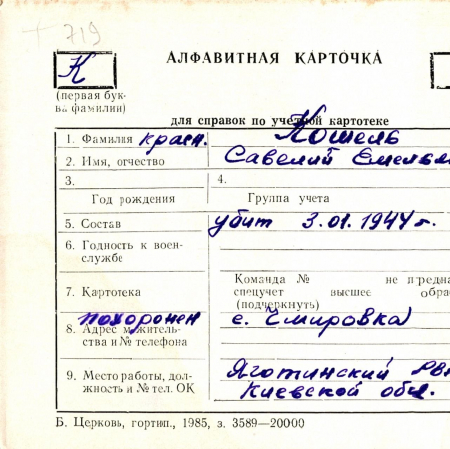 + 719
К
АЛФАВИТНАЯ КАРТОЧКА
(первая бук-
ва фамилии)
для справок по учетной картотеке
1. Фамилия красн. Кошель
2. Имя, отчество Савелий Емельян
3. 4.
Год рождения Группа учета
5. Состав убит 3.01.1944 г.
6. Годность к воен-
службе
Команда № не предна
7. Картотека спецучет высшее обра
(подчеркнуть)
похоронен с. Чмировка
8. Адрес м/житель-
ства и № телефона
9. Место работы, дол- Яготинский рвк
жность и № тел. ОК Киевской обл.
Б. Церковь, гортип., 1985, з. 3589—20000